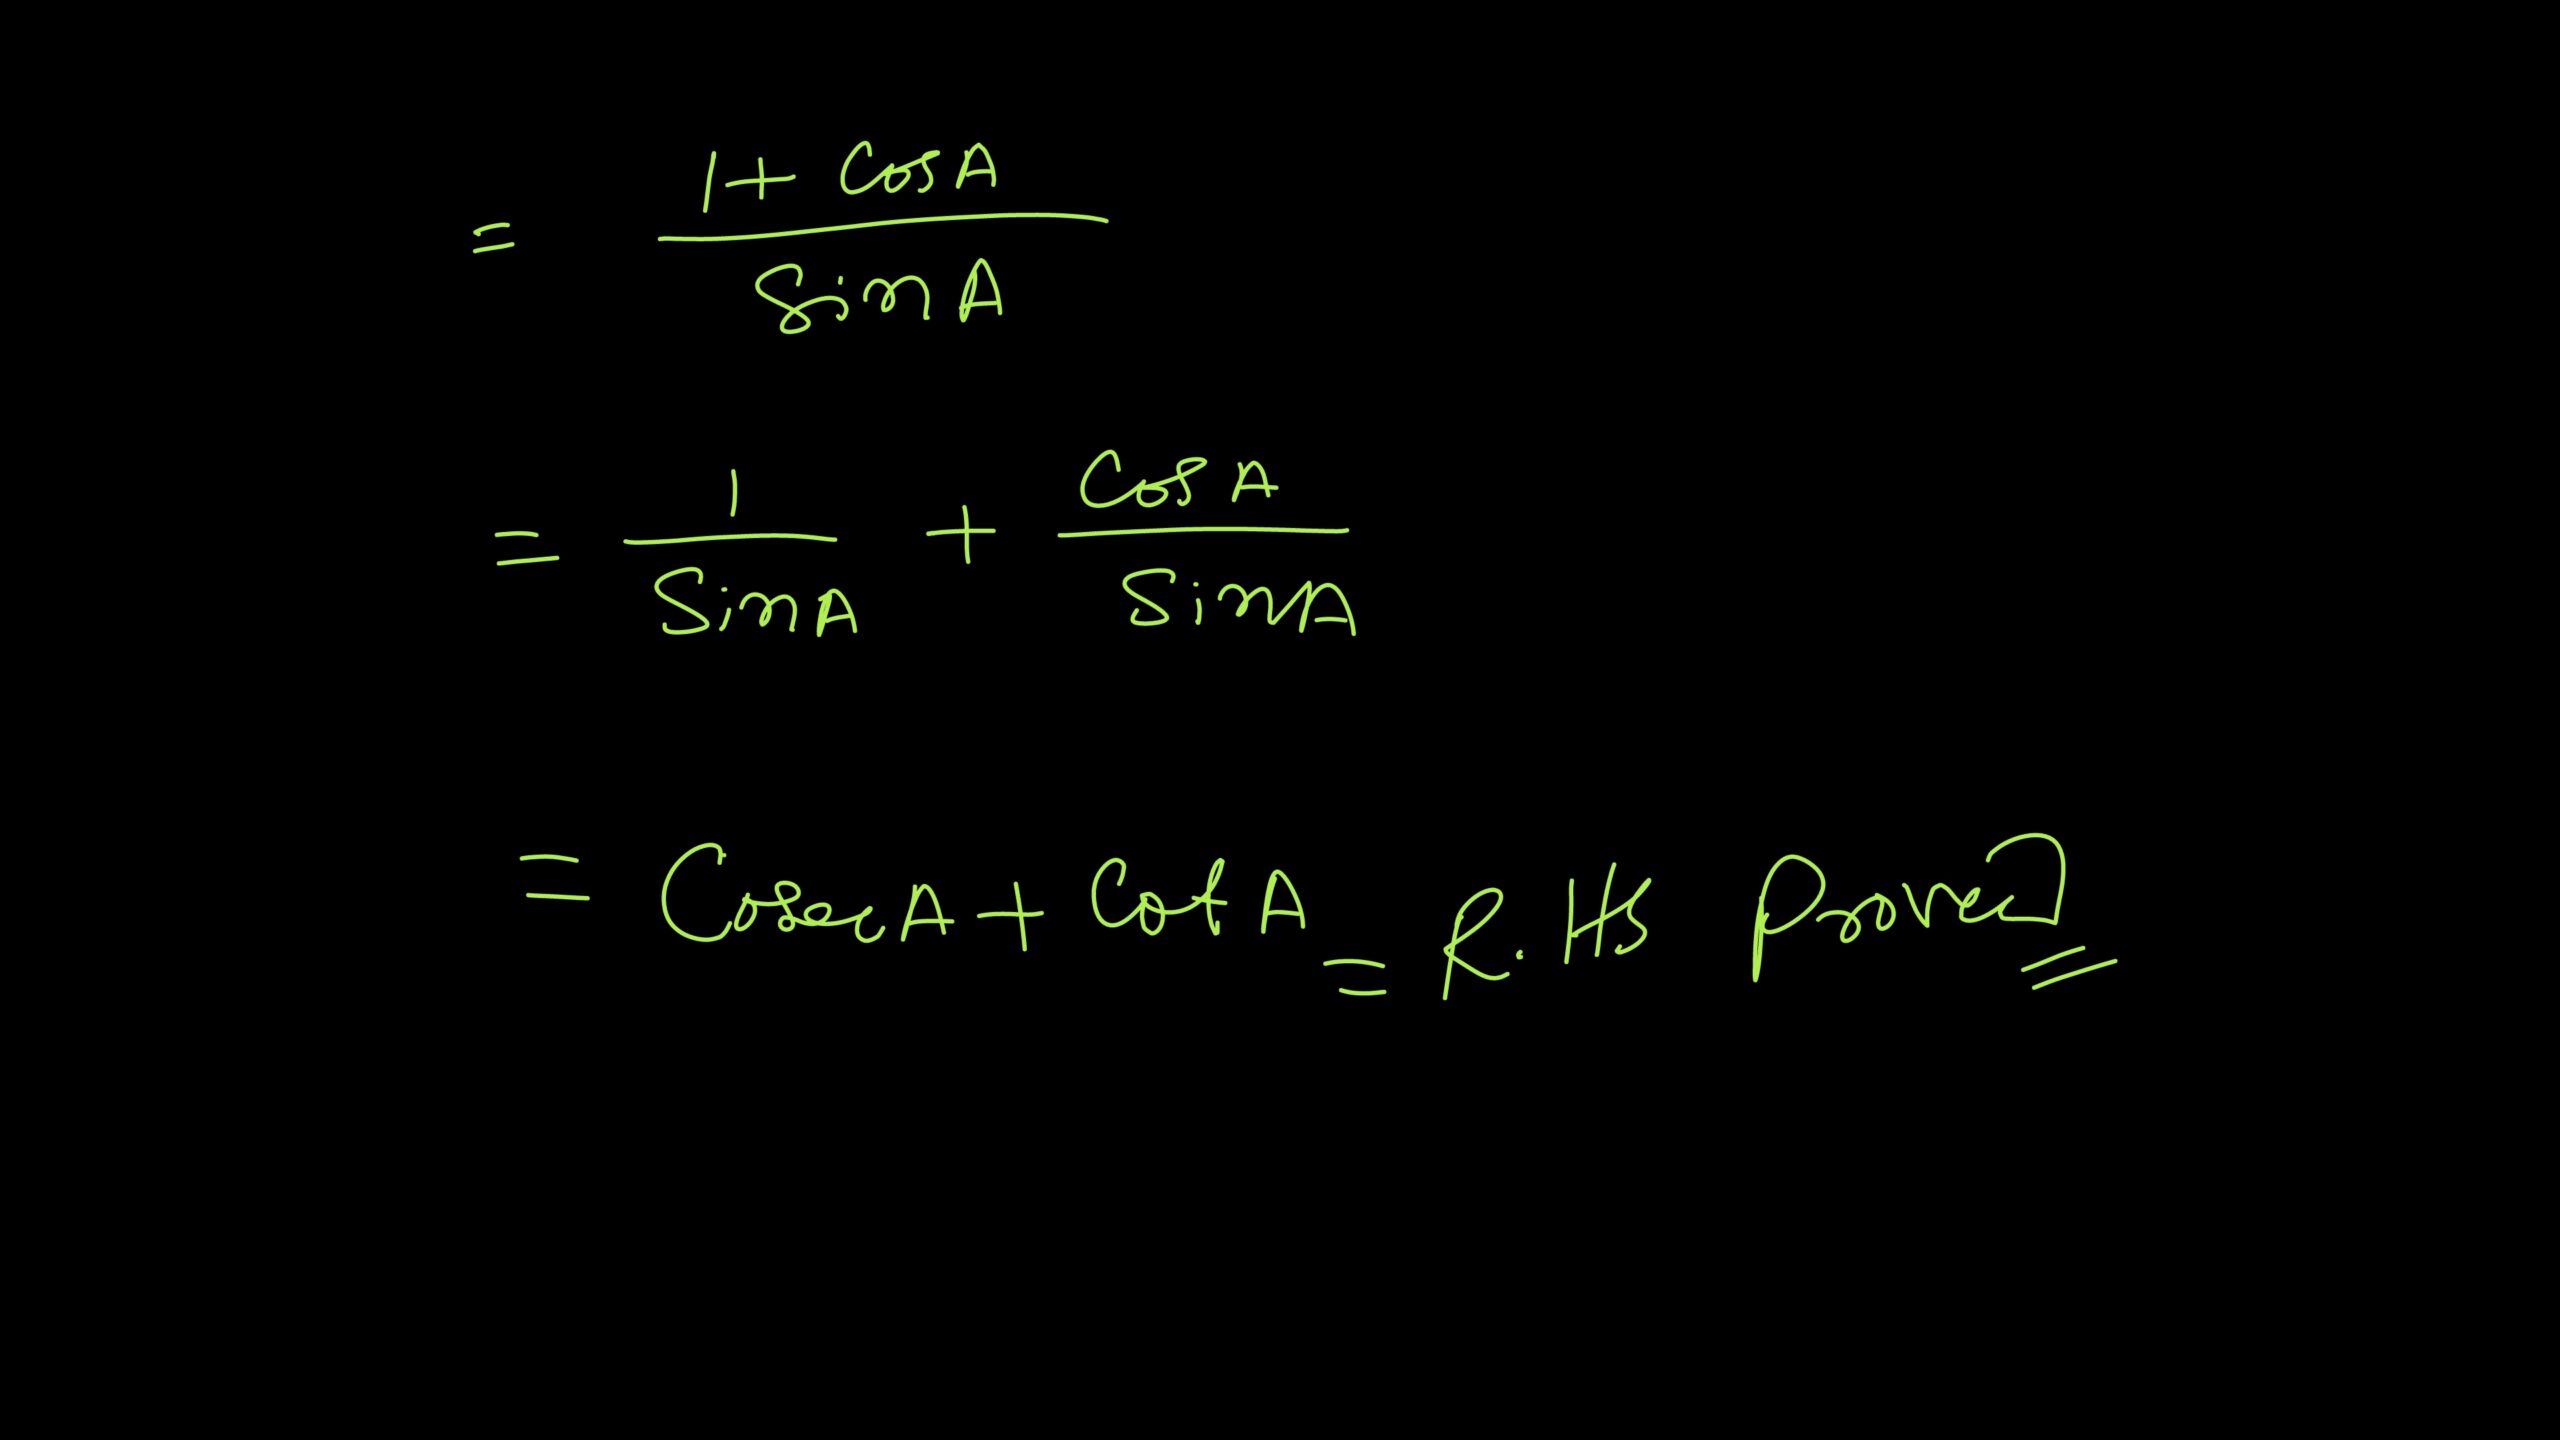 = (1 + CosA) / SinA
= 1 / SinA + CosA / SinA
= CosecA + CotA = R.HS Proved